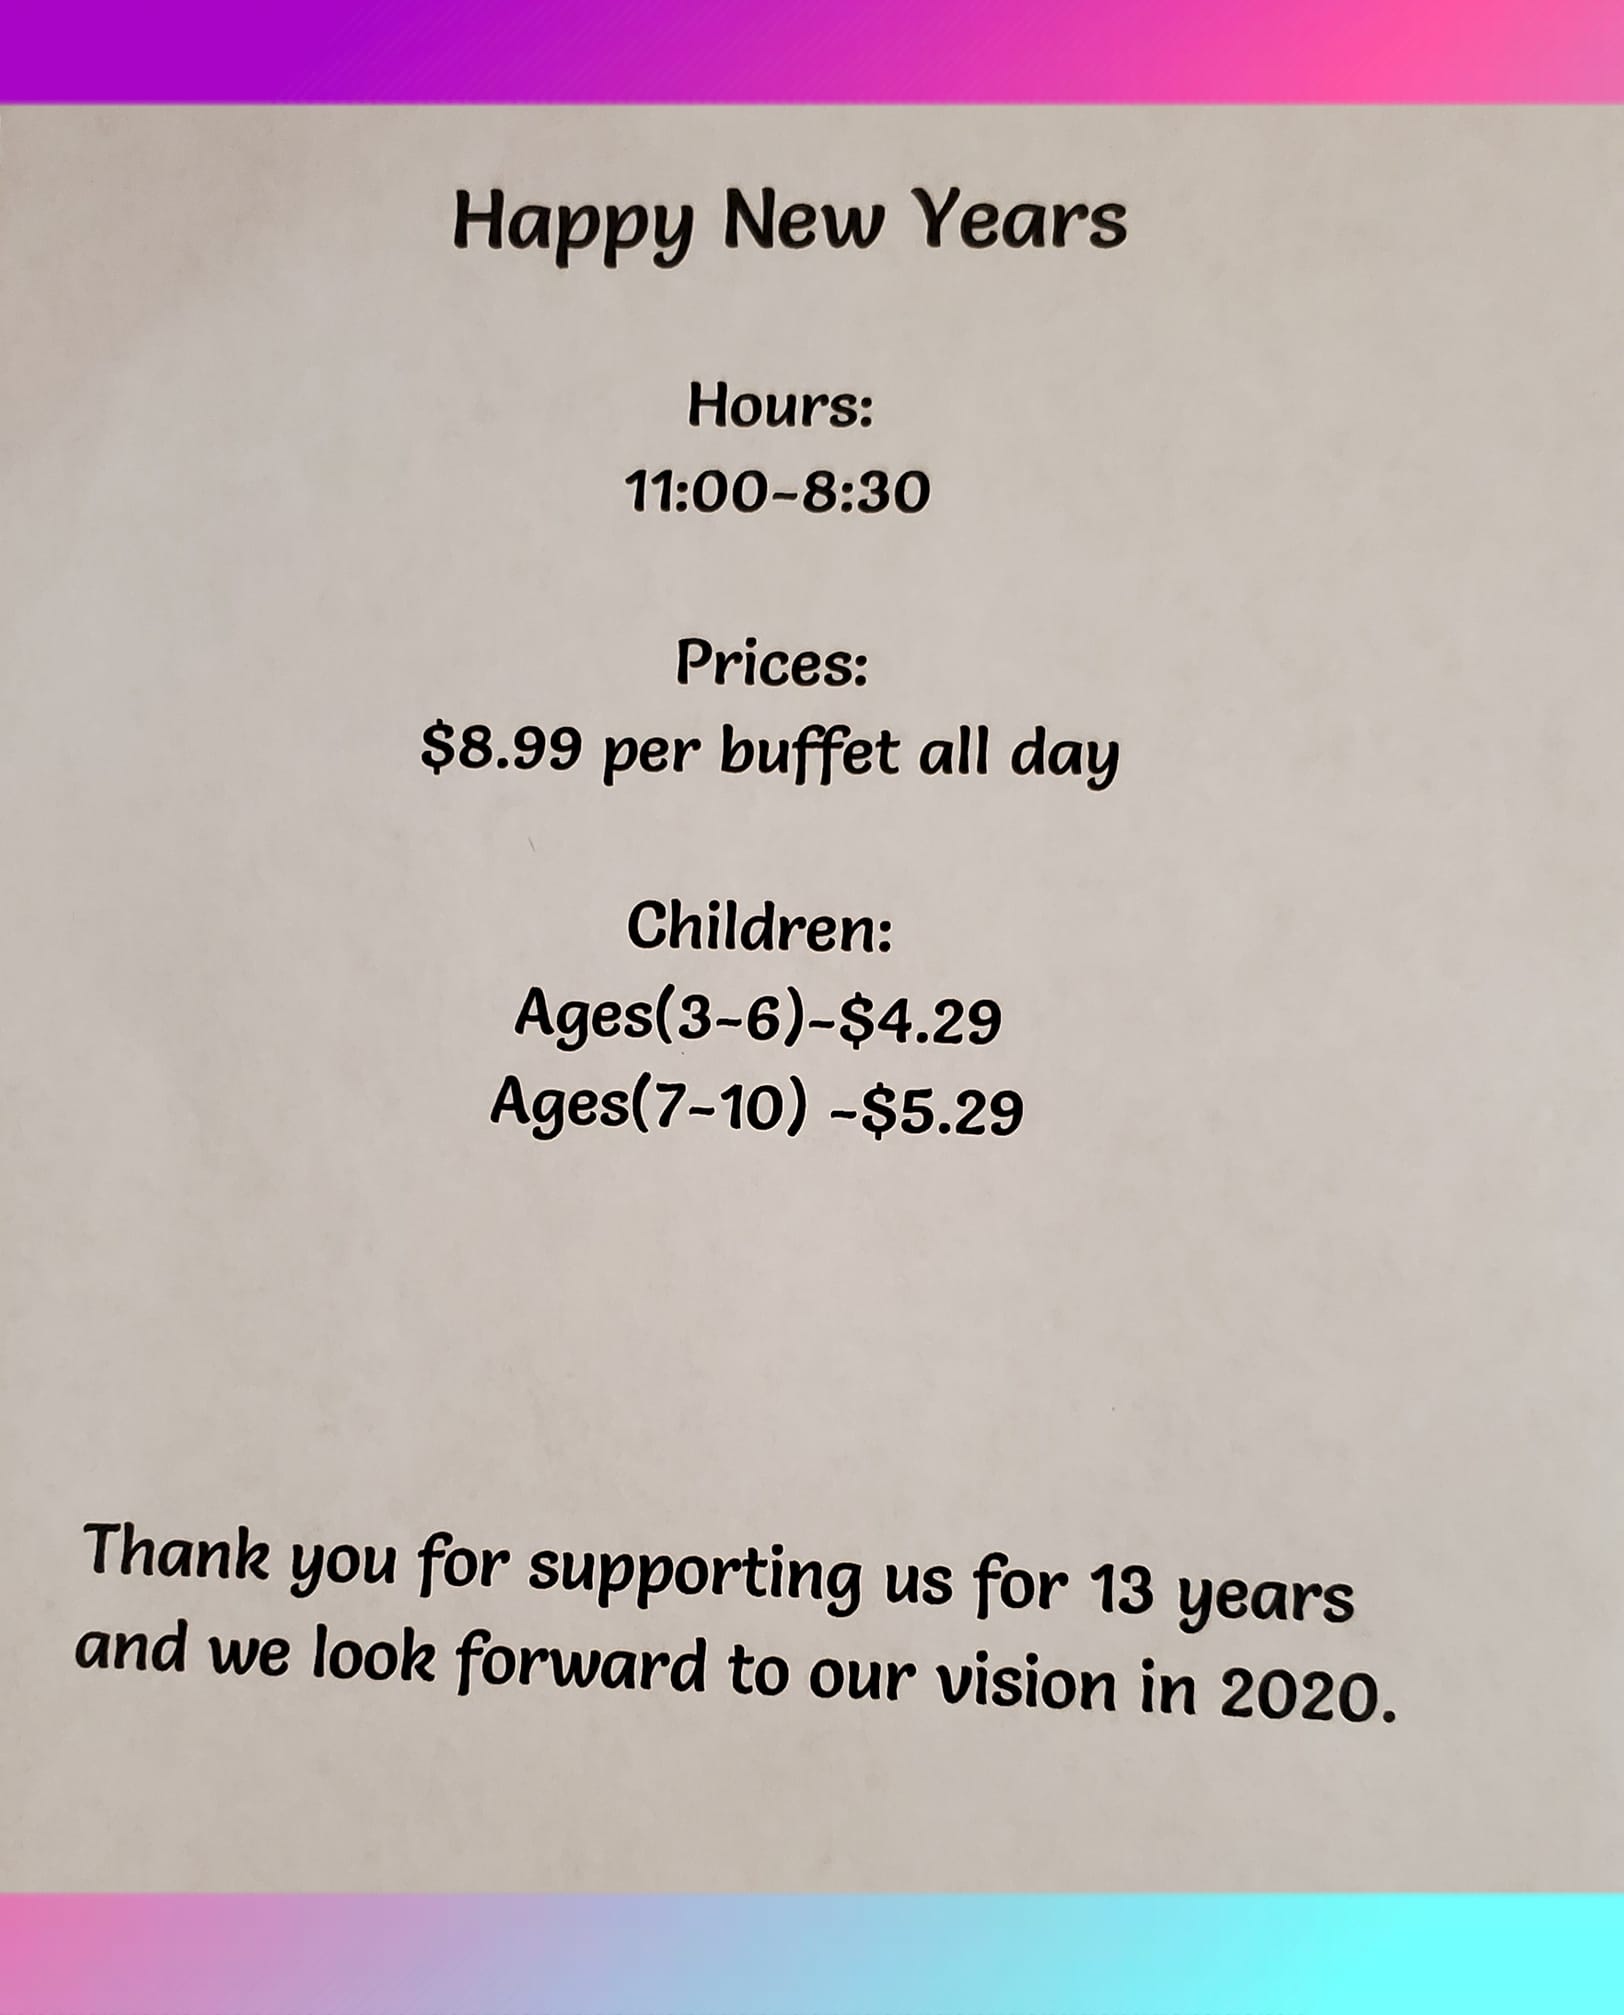 Happy New Years
Hours:
11:00-8:30
Prices:
$8.99 per buffet all day
Children:
Ages(3-6)-$4.29
Ages(7-10) -$5.29
Thank you for supporting us for 13 years
and we look forward to our vision in 2020.